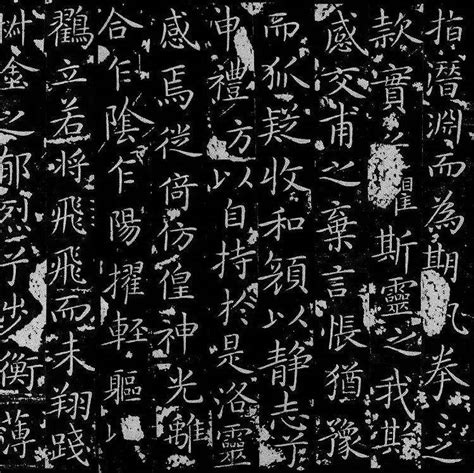 指潛淵而為期拳之
款實兮懼斯靈之我欺
感交甫之棄言悵猶豫
而狐疑收和顏以静志兮
申禮方以自持於是洛靈
感焉徙倚仿偟神光離
合乍陰乍陽擢輕軀以
鸖立若将飛飛而未翔踐
椒塗之郁烈兮步衡薄